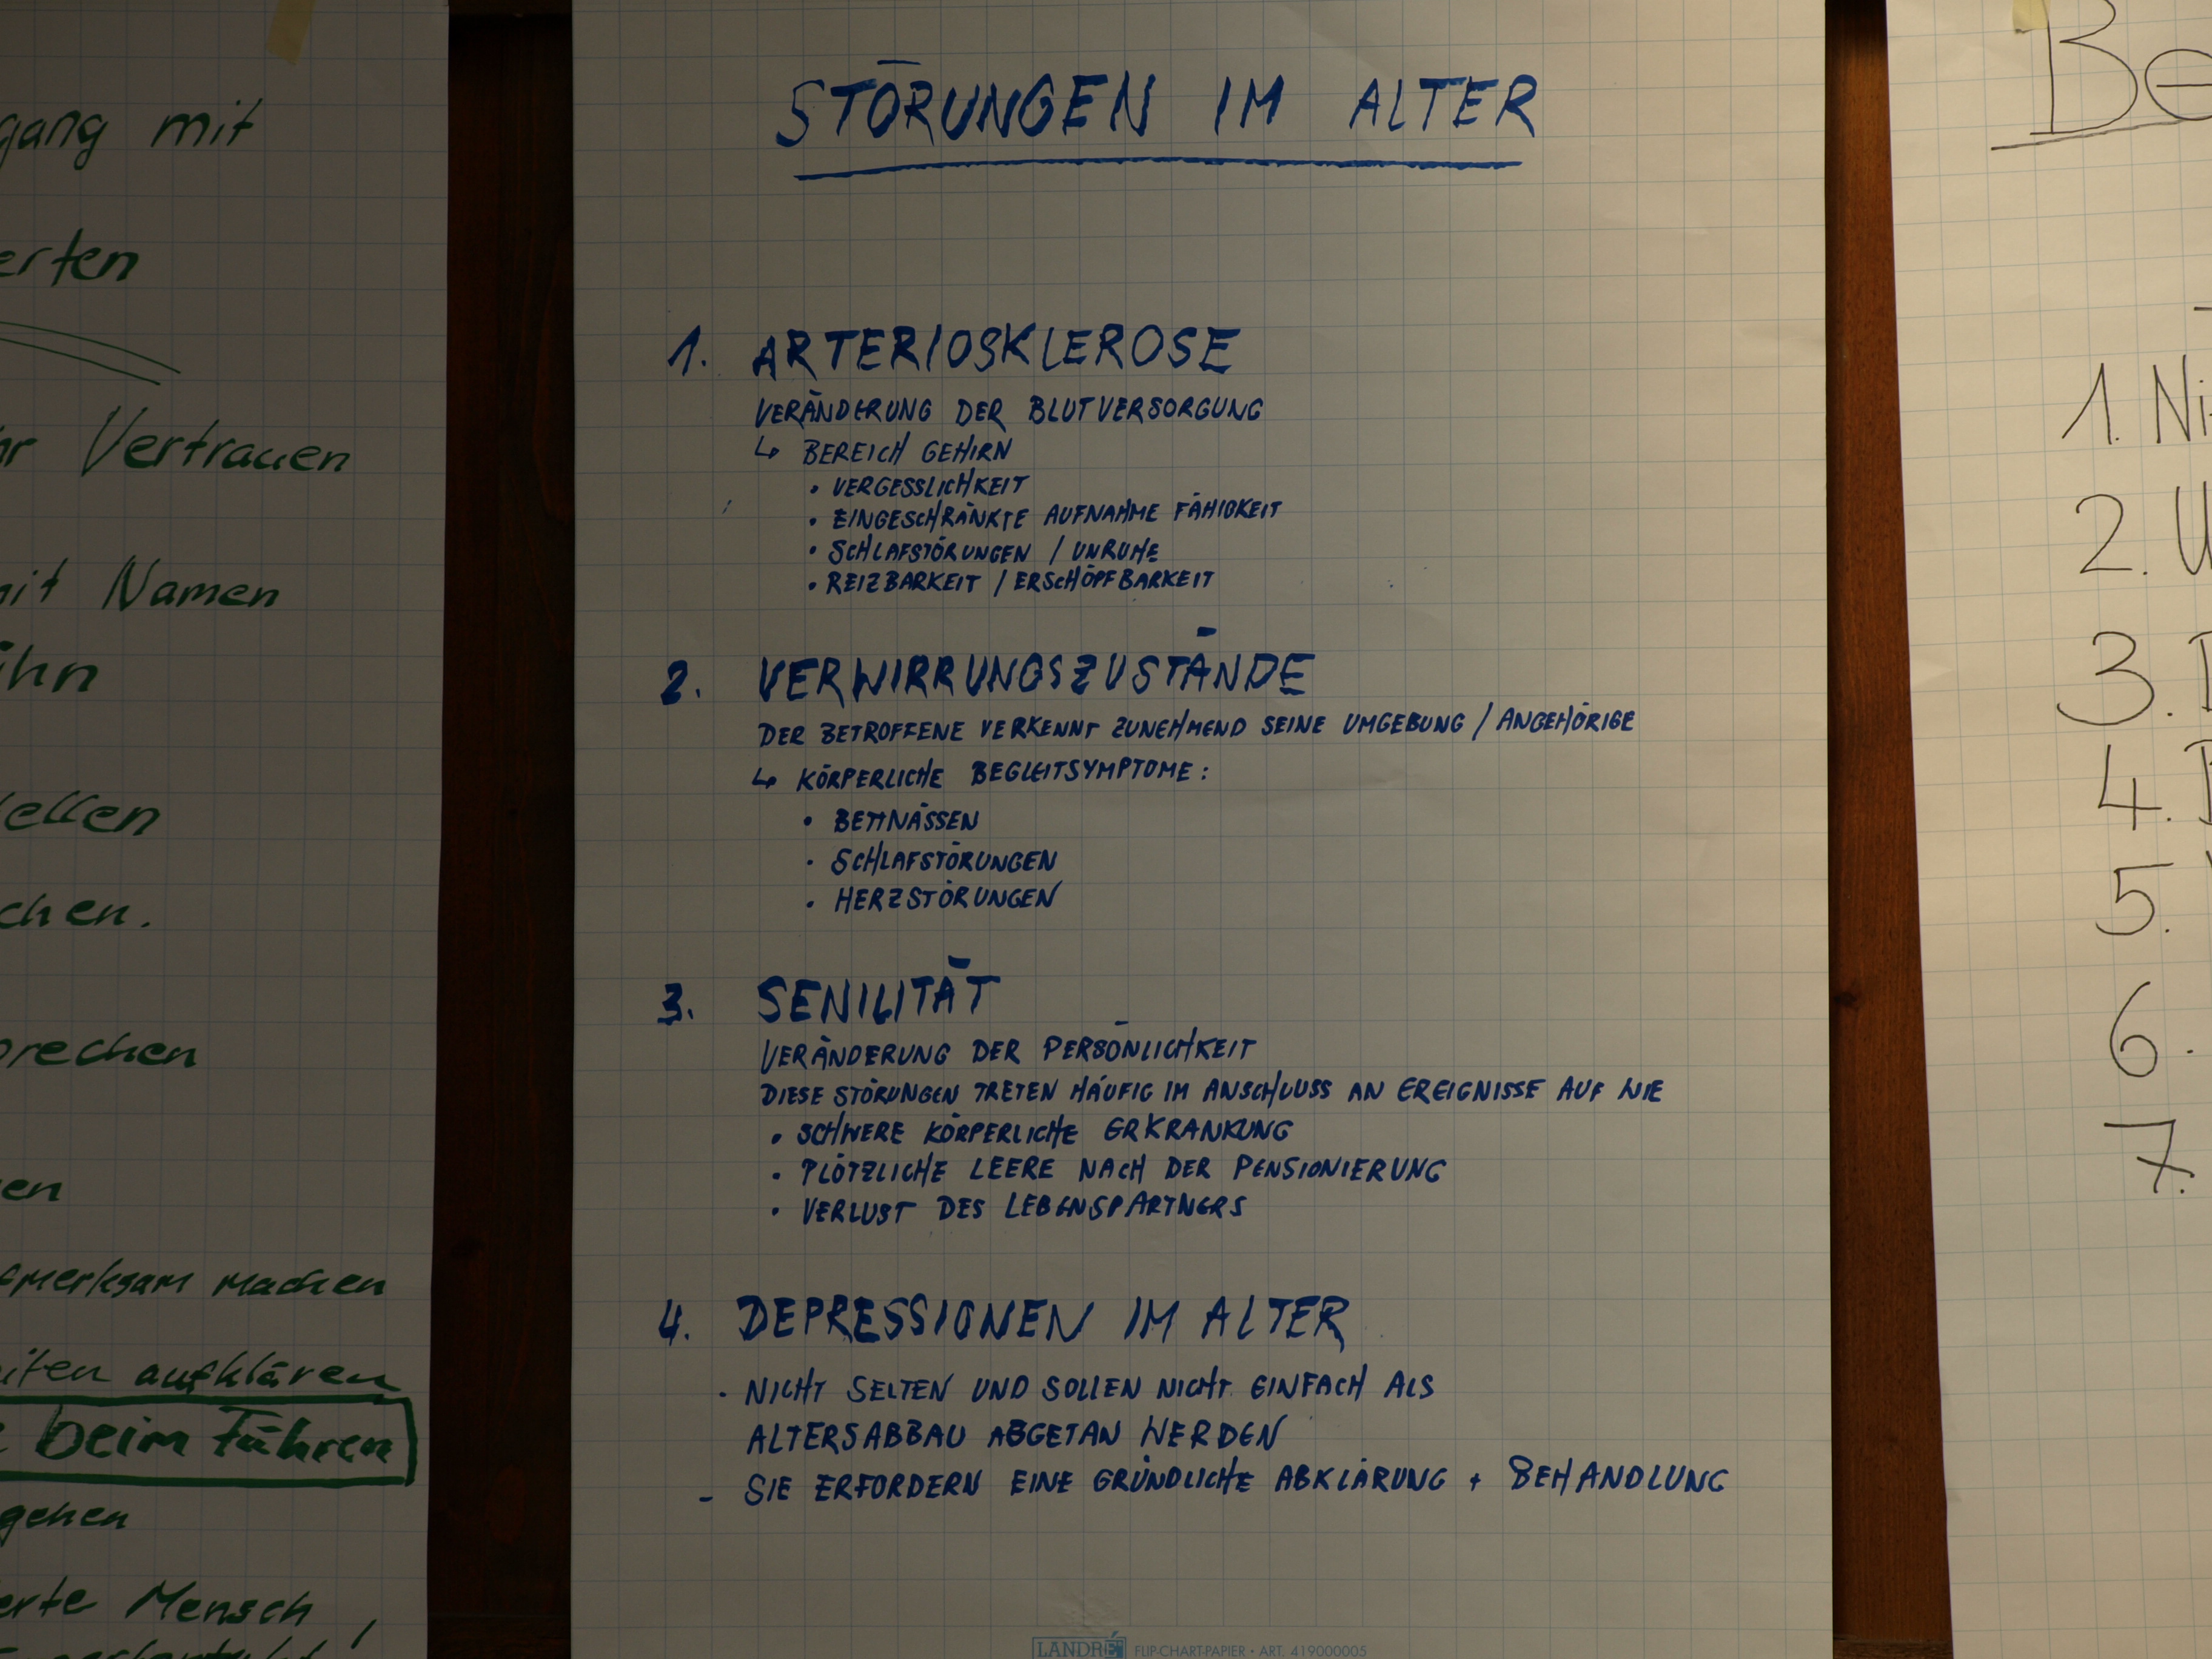 gang mit
erten
Vertrauen
mit Namen
ihn
ellen
chen.
prechen
en
merksam machen
aufklären
beim Führen
gehen
erte Mensch
STÖRUNGEN IM ALTER
1. ARTERIOSKLEROSE
VERÄNDERUNG DER BLUTVERSORGUNG
↳ BEREICH GEHIRN
• VERGESSLICHKEIT
• EINGESCHRÄNKTE AUFNAHME FÄHIGKEIT
• SCHLAFSTÖRUNGEN / UNRUHE
• REIZBARKEIT / ERSCHÖPFBARKEIT
2. VERWIRRUNGSZUSTÄNDE
DER BETROFFENE VERKENNT ZUNEHMEND SEINE UMGEBUNG / ANGEHÖRIGE
↳ KÖRPERLICHE BEGLEITSYMPTOME:
• BETTNÄSSEN
• SCHLAFSTÖRUNGEN
• HERZSTÖRUNGEN
3. SENILITÄT
VERÄNDERUNG DER PERSÖNLICHKEIT
DIESE STÖRUNGEN TRETEN HÄUFIG IM ANSCHLUSS AN EREIGNISSE AUF WIE
• SCHWERE KÖRPERLICHE ERKRANKUNG
• PLÖTZLICHE LEERE NACH DER PENSIONIERUNG
• VERLUST DES LEBENSPARTNERS
4. DEPRESSIONEN IM ALTER
- NICHT SELTEN UND SOLLEN NICHT EINFACH ALS
ALTERSABBAU ABGETAN WERDEN
- SIE ERFORDERN EINE GRÜNDLICHE ABKLÄRUNG + BEHANDLUNG
LANDRÉ FLIP-CHART-PAPIER • ART. 419000005
Be
1. Ni
2. U
3.
4.
5.
6.
7.